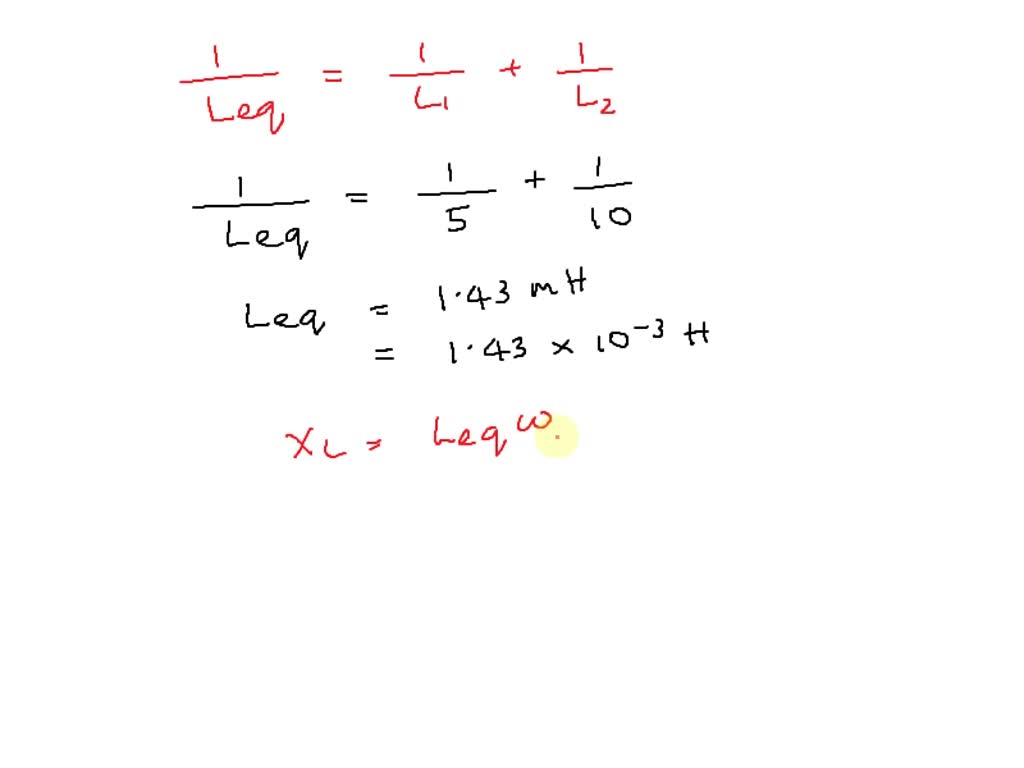 1/Leq = 1/L1 + 1/L2
1/Leq = 1/5 + 1/10
Leq = 1.43 mH
= 1.43 × 10⁻³ H
XL = Leq ω.